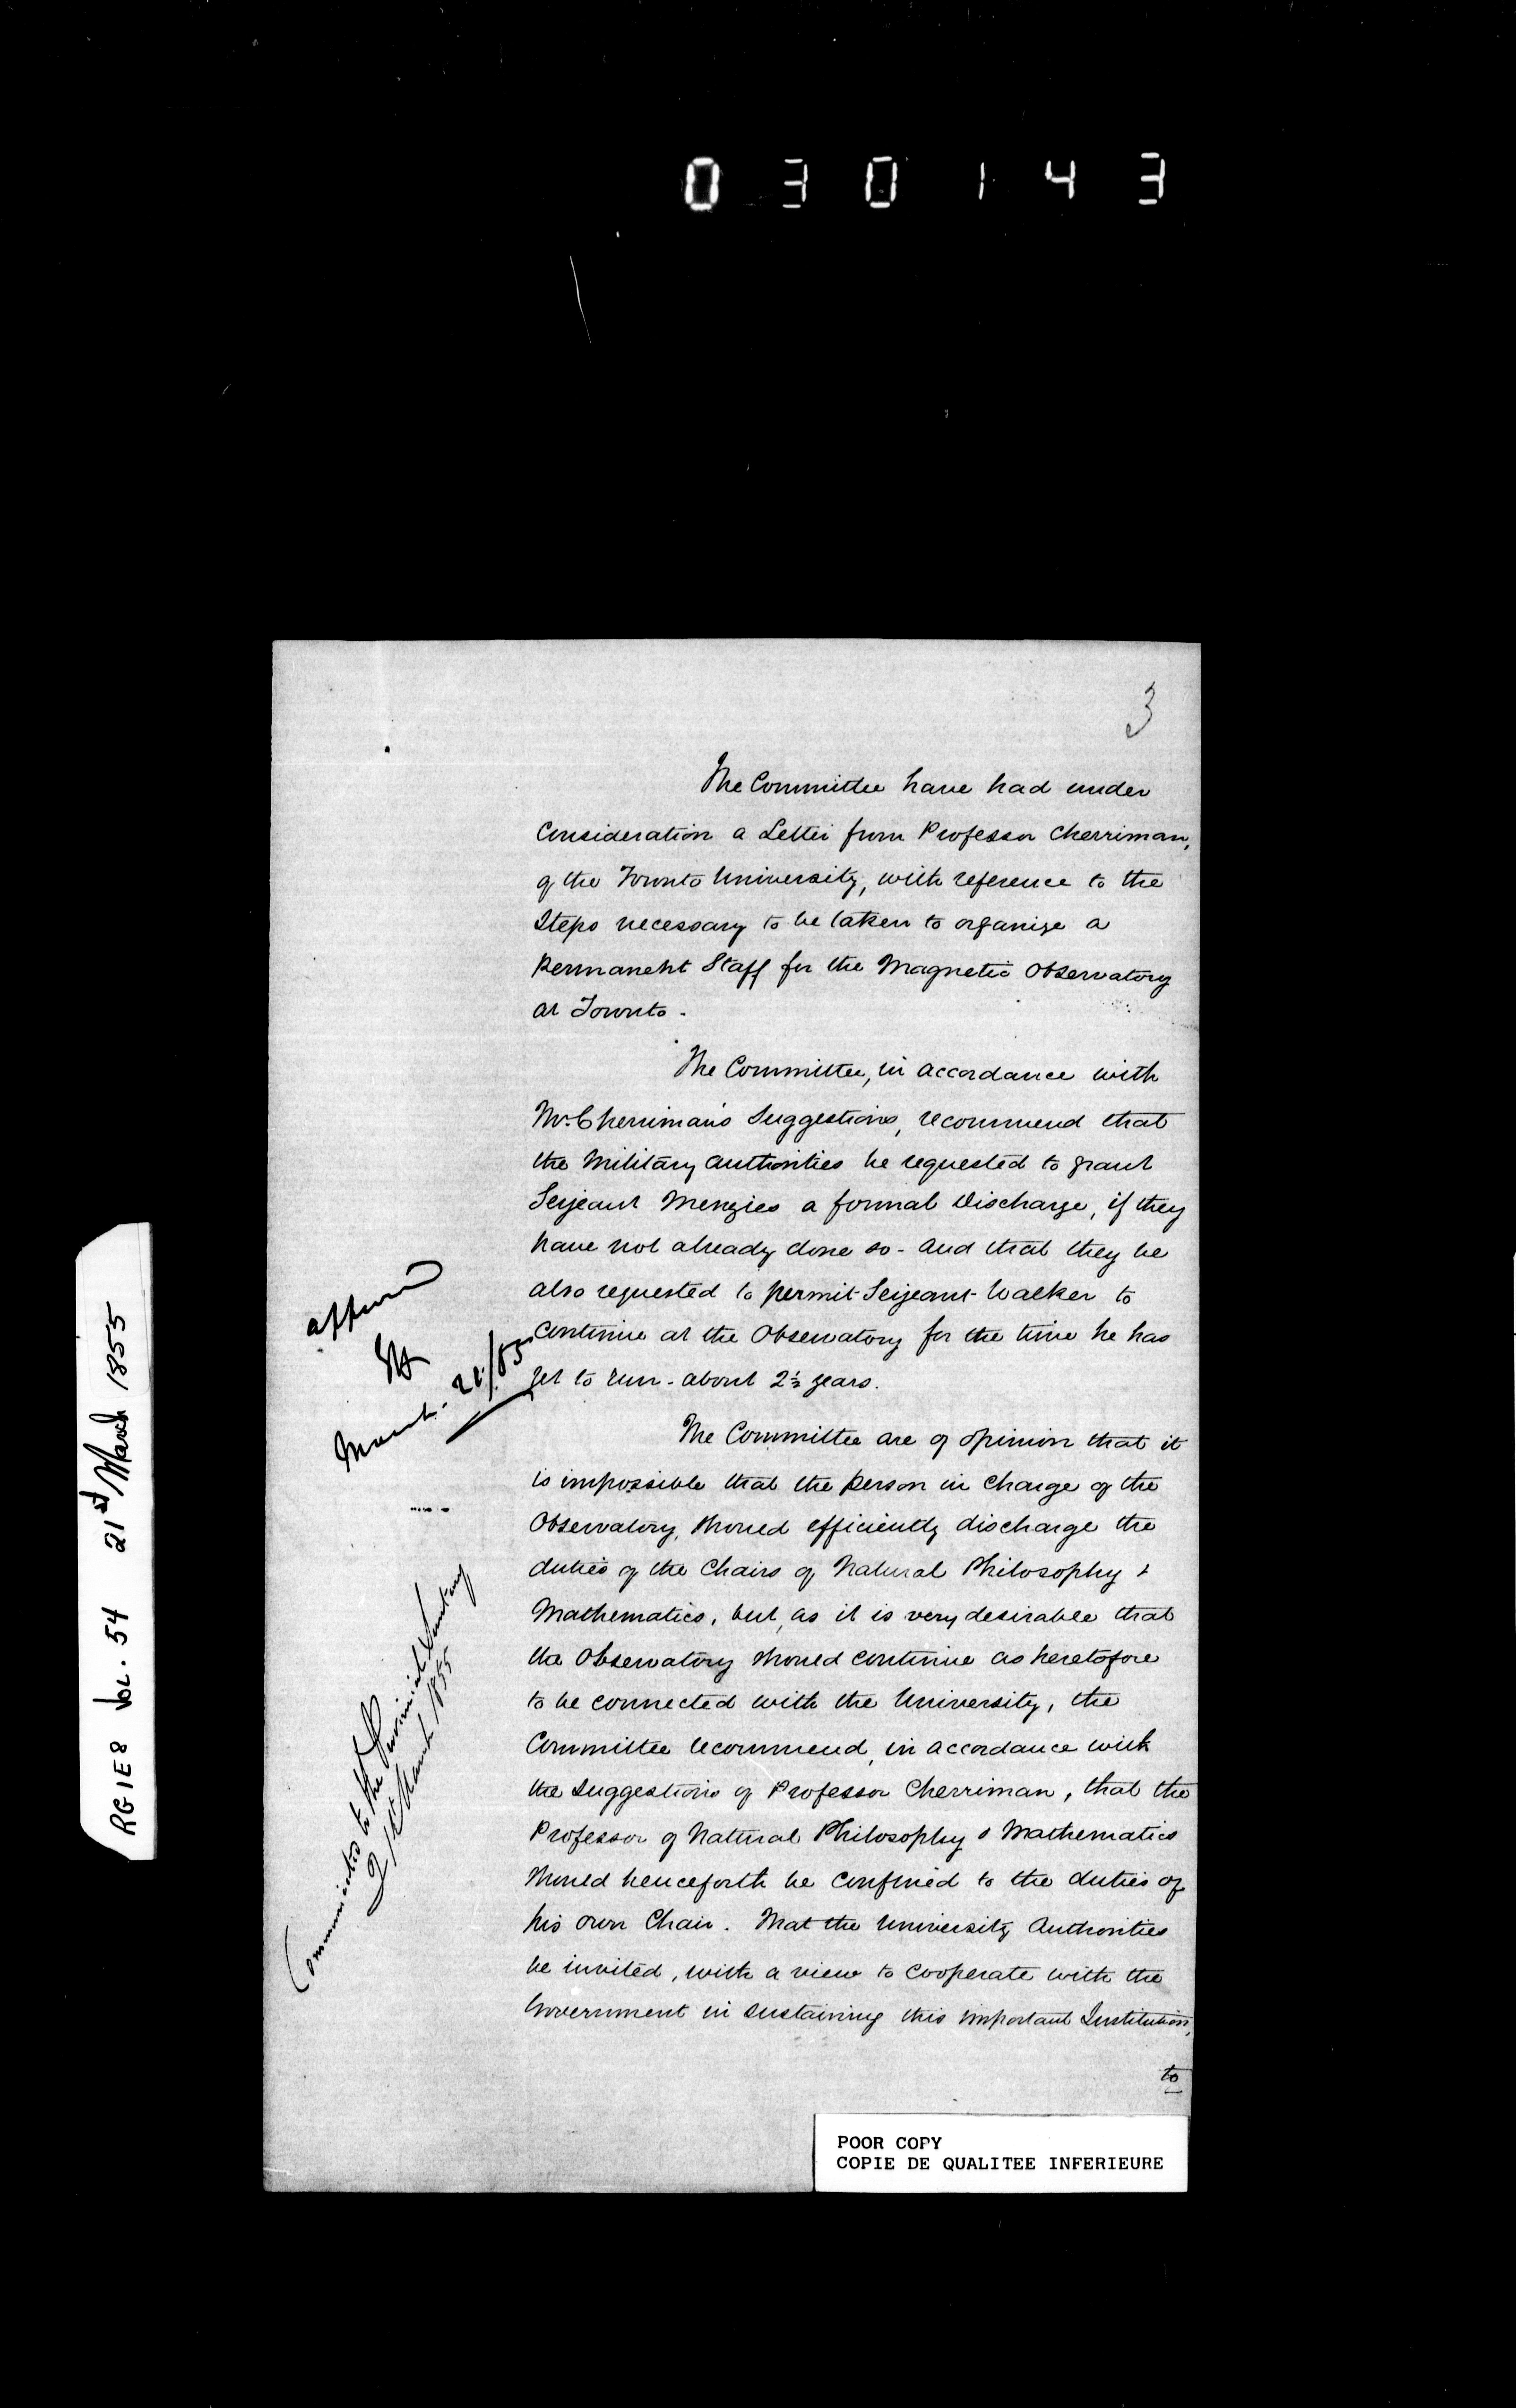 030143
3
The Committee have had under
Consideration a Letter from Professor Cherriman,
of the Toronto University, with reference to the
Steps necessary to be taken to organize a
permanent Staff for the Magnetic Observatory
at Toronto -
The Committee, in accordance with
Mr. Cherriman's Suggestions, recommend that
the Military Authorities be requested to grant
Serjeant Menzies a formal Discharge, if they
have not already done so - and that they be
also requested to permit Serjeant Walker to
continue at the Observatory for the time he has
yet to run - about 2½ years.
The Committee are of opinion that it
is impossible that the person in charge of the
Observatory, should efficiently discharge the
duties of the Chairs of Natural Philosophy &
Mathematics, but, as it is very desirable that
the Observatory should continue as heretofore
to be connected with the University, the
Committee recommend, in accordance with
the suggestions of Professor Cherriman, that the
Professor of Natural Philosophy & Mathematics
should henceforth be confined to the duties of
his own Chair. That the University Authorities
be invited, with a view to cooperate with the
Government in sustaining this important Institution,
to
March. 21/55
Communicated to the Provincial Secretary
21st March 1855
RG1E8 Vol. 54 21st March 1855
POOR COPY
COPIE DE QUALITEE INFERIEURE